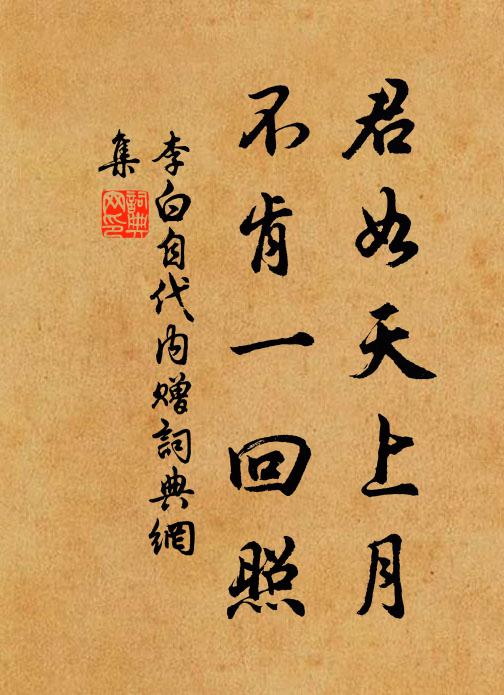 君如天上月
不肯一回照
李白自代内赠詞典網
集
詞典
网印